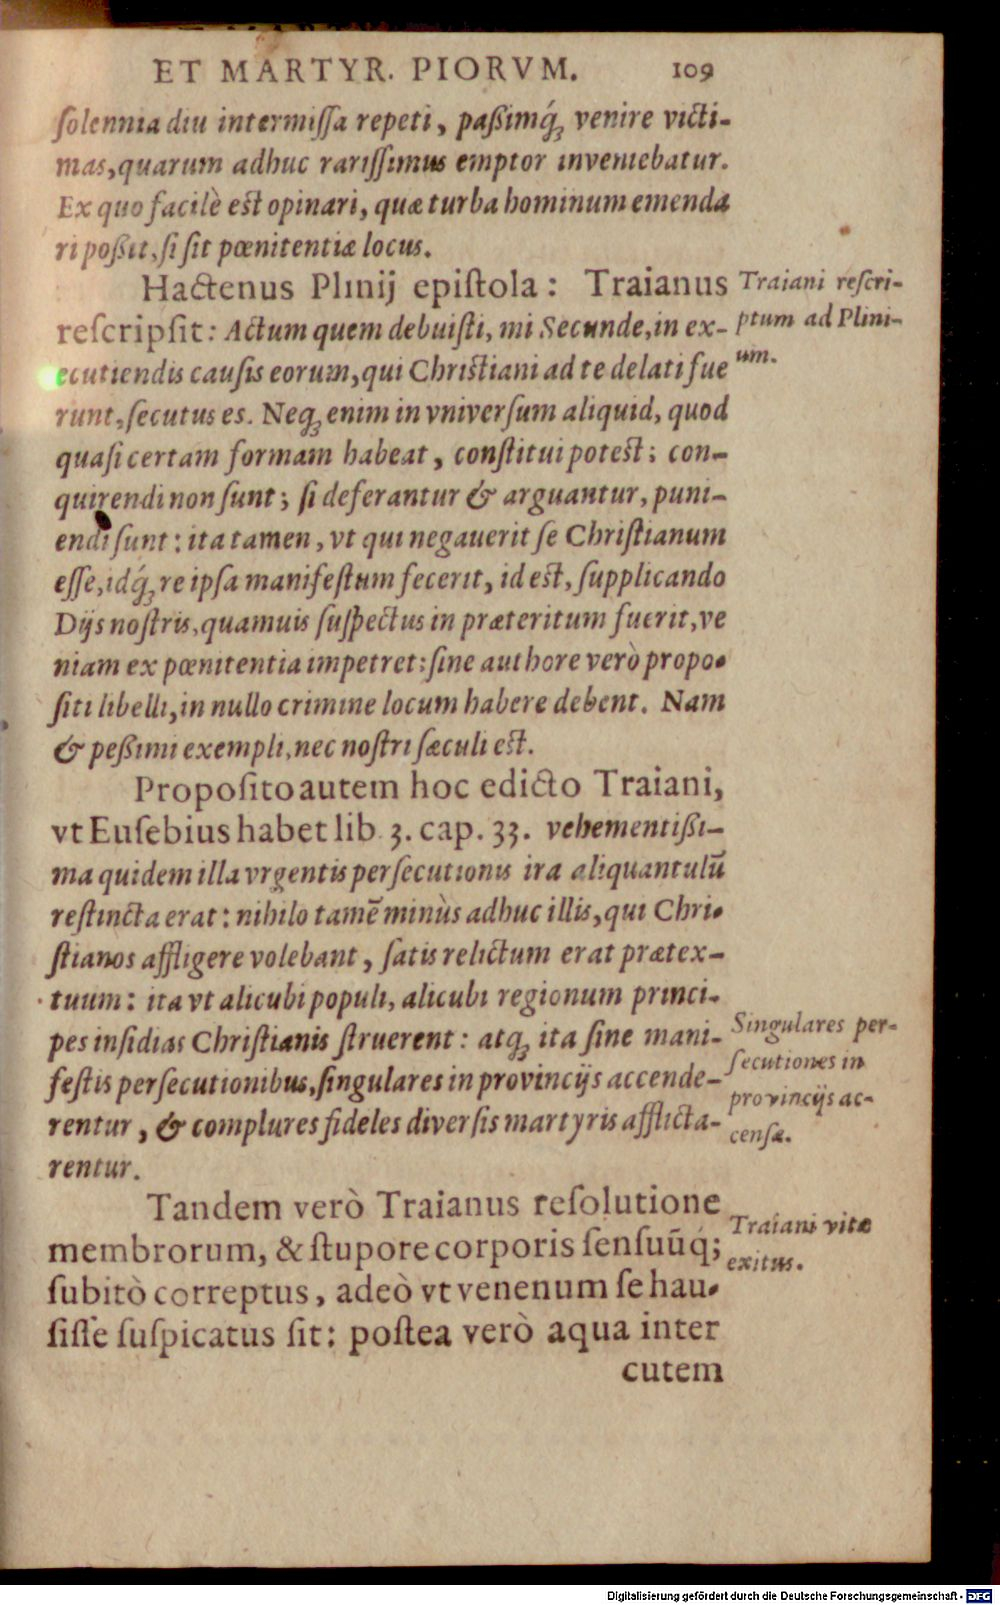 ET MARTYR. PIORVM. 109
ſolennia diu intermiſſa repeti, paßimq́ꝫ venire victi-
mas, quarum adhuc rariſſimus emptor inveniebatur.
Ex quo facilè eſt opinari, quæ turba hominum emenda
ri poßit, ſi ſit pœnitentiæ locus.
Hactenus Plinij epiſtola: Traianus
reſcripſit: Actum quem debuiſti, mi Secunde, in ex-
ecutiendis cauſis eorum, qui Chriſtiani ad te delati fue
runt, ſecutus es. Neqꝫ enim in vniverſum aliquid, quod
quaſi certam formam habeat, conſtitui poteſt; con-
quirendi non ſunt; ſi deferantur & arguantur, puni-
endi ſunt: ita tamen, vt qui negauerit ſe Chriſtianum
eſſe, idq́ꝫ re ipſa manifeſtum fecerit, id eſt, ſupplicando
Dijs noſtris, quamuis ſuſpectus in præteritum fuerit, ve
niam ex pœnitentia impetret: ſine authore verò propo-
ſiti libelli, in nullo crimine locum habere debent. Nam
& peßimi exempli, nec noſtri ſæculi eſt.
Propoſito autem hoc edicto Traiani,
vt Euſebius habet lib. 3. cap. 33. vehementißi-
ma quidem illa vrgentis perſecutionis ira aliquantulū
reſtincta erat: nihilo tamē minùs adhuc illis, qui Chri-
ſtianos affligere volebant, ſatis relictum erat prætex-
tuum: ita vt alicubi populi, alicubi regionum princi-
pes inſidias Chriſtianis ſtruerent: atqꝫ ita ſine mani-
feſtis perſecutionibus, ſingulares in provincijs accende-
rentur, & complures fideles diverſis martyris afflicta-
rentur.
Tandem verò Traianus reſolutione
membrorum, & ſtupore corporis ſenſuūq́;
ſubitò correptus, adeò vt venenum ſe hau-
ſiſſe ſuſpicatus ſit: poſtea verò aqua inter
cutem
Traiani reſcri-
ptum ad Plini-
um.
Singulares per-
ſecutiones in
provincijs ac-
cenſæ.
Traiani vitæ
exitus.
Digitalisierung gefördert durch die Deutsche Forschungsgemeinschaft - DFG